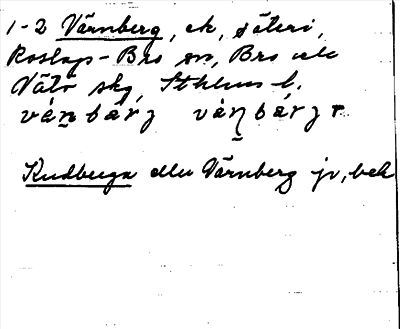 1-2 Värnberg, ek, säteri,
Roslags-Bro sn, Bro och
Vätö skg, Sthlms l.
Kudberga eller Värnberg jr, bek